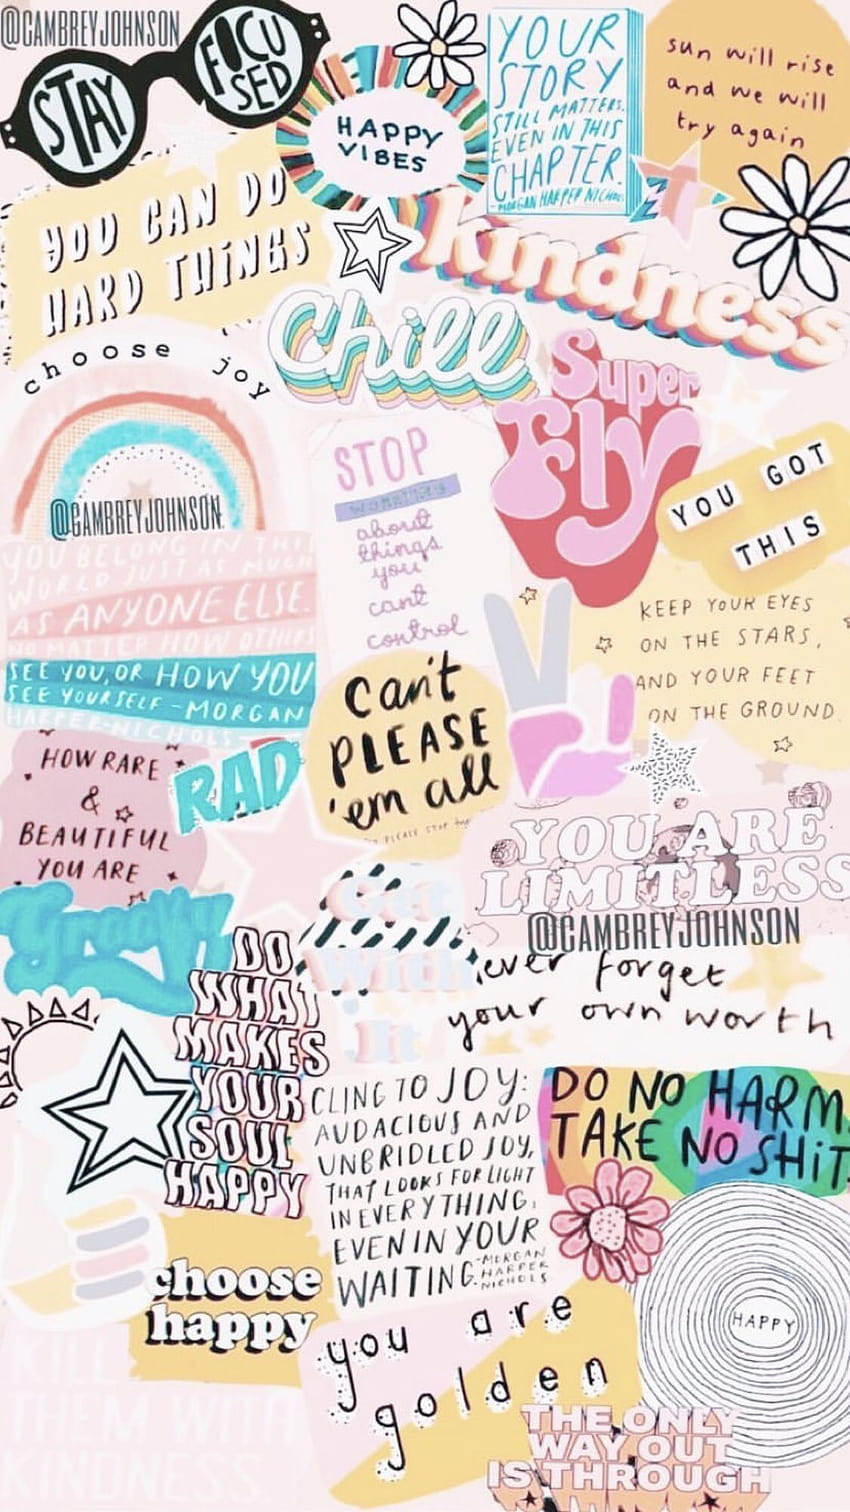 @CAMBREYJOHNSON
STAY
FOCU
SED
HAPPY
VIBES
YOUR
STORY
STILL MATTERS.
EVEN IN THIS
CHAPTER.
-MORGAN HARPER NICHOLS
sun will rise
and we will
try again
YOU CAN DO
HARD THiNGS
kindness
Chill
choose joy
@CAMBREYJOHNSON
Super
Fly
STOP
worrying
about
things
you
cant
control
YOU GOT
THIS
YOU BELONG IN THIS
WORLD JUST AS MUCH
AS ANYONE ELSE.
NO MATTER HOW OTHERS
SEE YOU, OR HOW YOU
SEE YOURSELF -MORGAN
HARPER-NICHOLS
KEEP YOUR EYES
ON THE STARS,
AND YOUR FEET
ON THE GROUND
can't
PLEASE
'em all
PLEASE STOP
HOW RARE
&
BEAUTIFUL
YOU ARE
RAD
YOU ARE
LIMITLESS
@CAMBREYJOHNSON
Groovy
Get
With
It
ever forget
your own worth
DO
WHAT
MAKES
YOUR
SOUL
HAPPY
CLING TO JOY:
AUDACIOUS AND
UNBRIDLED JOY,
THAT LOOKS FOR LIGHT
IN EVERYTHING,
EVEN IN YOUR
WAITING.
-MORGAN
HARPER
NICHOLS
DO NO HARM.
TAKE NO SHiT.
choose
happy
HAPPY
you are
golden
KILL
THEM WITH
KINDNESS
THE ONLY
WAY OUT
IS THROUGH